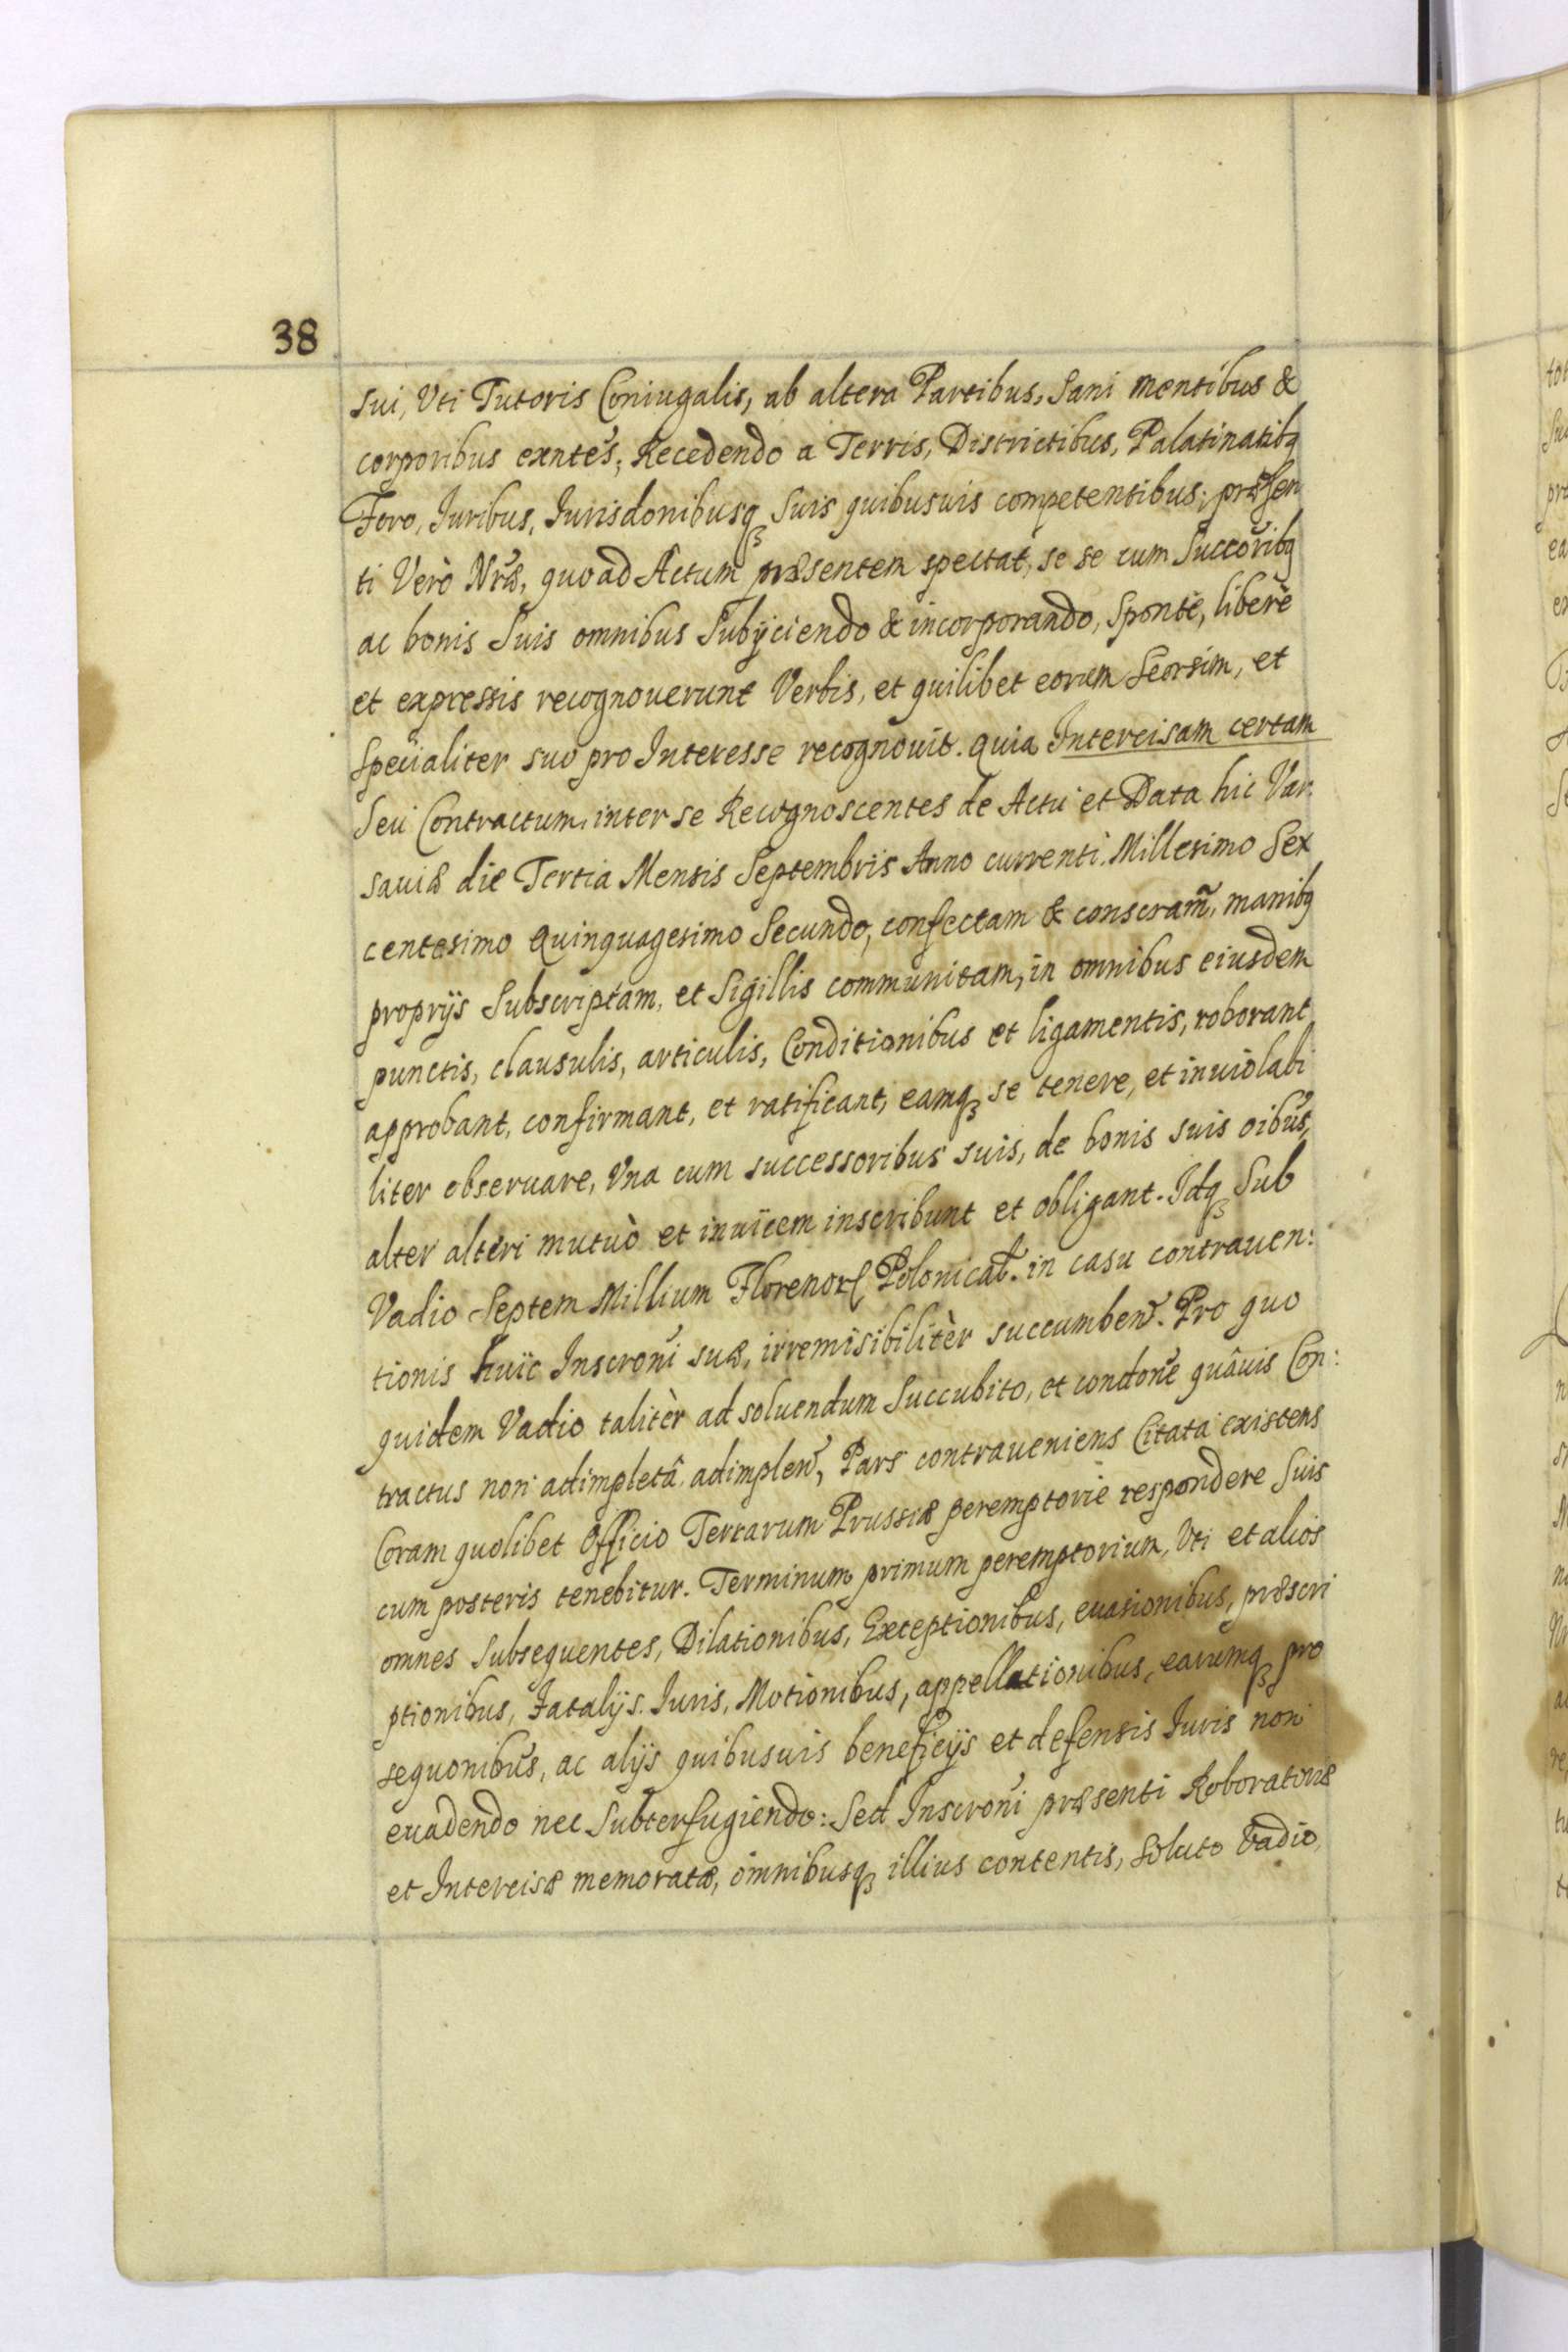 38
sui, Uti Tutoris Coniugalis, ab altera Partibus, Sani mentibus &
corporibus exntes, Recedendo a Terris, Districtibus, Palatinatibq
Foro, Iuribus, Iurisdonibusq suis quibusuis competentibus; præsen
ti Verò Nrã, quoad Actum præsentem spectat, se se cum Succoribq
ac bonis Suis omnibus Subijciendo & incorporando, Sponte, liberè
et expressis recognouerunt Verbis, et quilibet eorum Seorsim, et
Specialiter suo pro Interesse recognouit. quia Intercisam certam
Seu Contractum, inter se Recognoscentes de Actu et Data hic Var:
sauiæ die Tertia Mensis Septembris Anno currenti Millesimo Sex
centesimo Quinquagesimo Secundo, confectam & conscram̃, manibq
proprijs Subscriptam, et Sigillis communitam, in omnibus eiusdem
punctis, clausulis, articulis, Conditionibus et ligamentis, roborant
approbant, confirmant, et ratificant, eamq se tenere, et inuiolabi
liter obseruare, Una cum successoribus suis, de bonis suis oibus,
alter alteri mutuò et inuicem inscribunt et obligant. Idq Sub
Vadio Septem Millium Florenor Polonical. in casu contrauen:
tionis huic Inscroni suæ, irremisibilitèr succumben. Pro quo
quidem Vadio talitèr ad soluendum Succubito, et condone quâuis Con:
tractus non adimpletâ adimplen, Pars contraueniens Citata existens
Coram quolibet Officio Terrarum Prussiæ peremptorie respondere Suis
cum posteris tenebitur. Terminum primum peremptorium, Uti et alios
omnes Subsequentes, Dilationibus, Exceptionibus, euasionibus, præscri
ptionibus, Fatalijs Iuris, Motionibus, appellationibus, earumq pro
sequonibus, ac alijs quibusuis beneficijs et defensis Iuris non
euadendo nec Subterfugiendo: Sed Inscroni præsenti Roboratoriæ
et Intercisæ memoratæ, omnibusq illius contentis, Soluto Vadio,